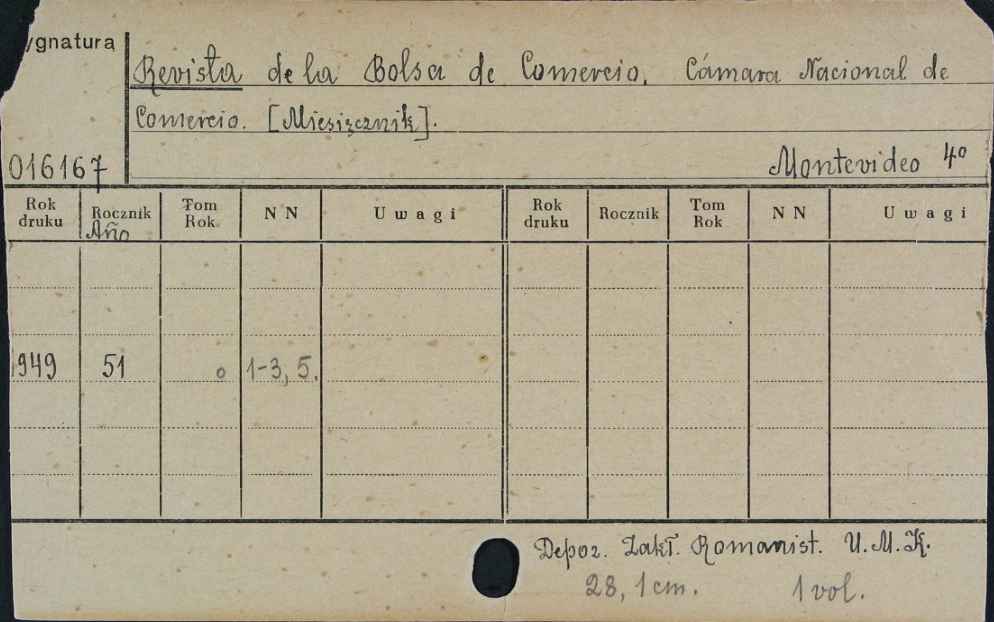 ygnatura
Revista de la Bolsa de Comercio. Cámara Nacional de
Comercio. [Miesięcznik].
016167
Montevideo 4º
Rok druku Rocznik Tom Rok N N Uwagi Rok druku Rocznik Tom Rok N N Uwagi
Año
1949 51 o 1-3, 5.
Depoz. Zakł. Romanist. U.M.K.
28,1cm. 1 vol.